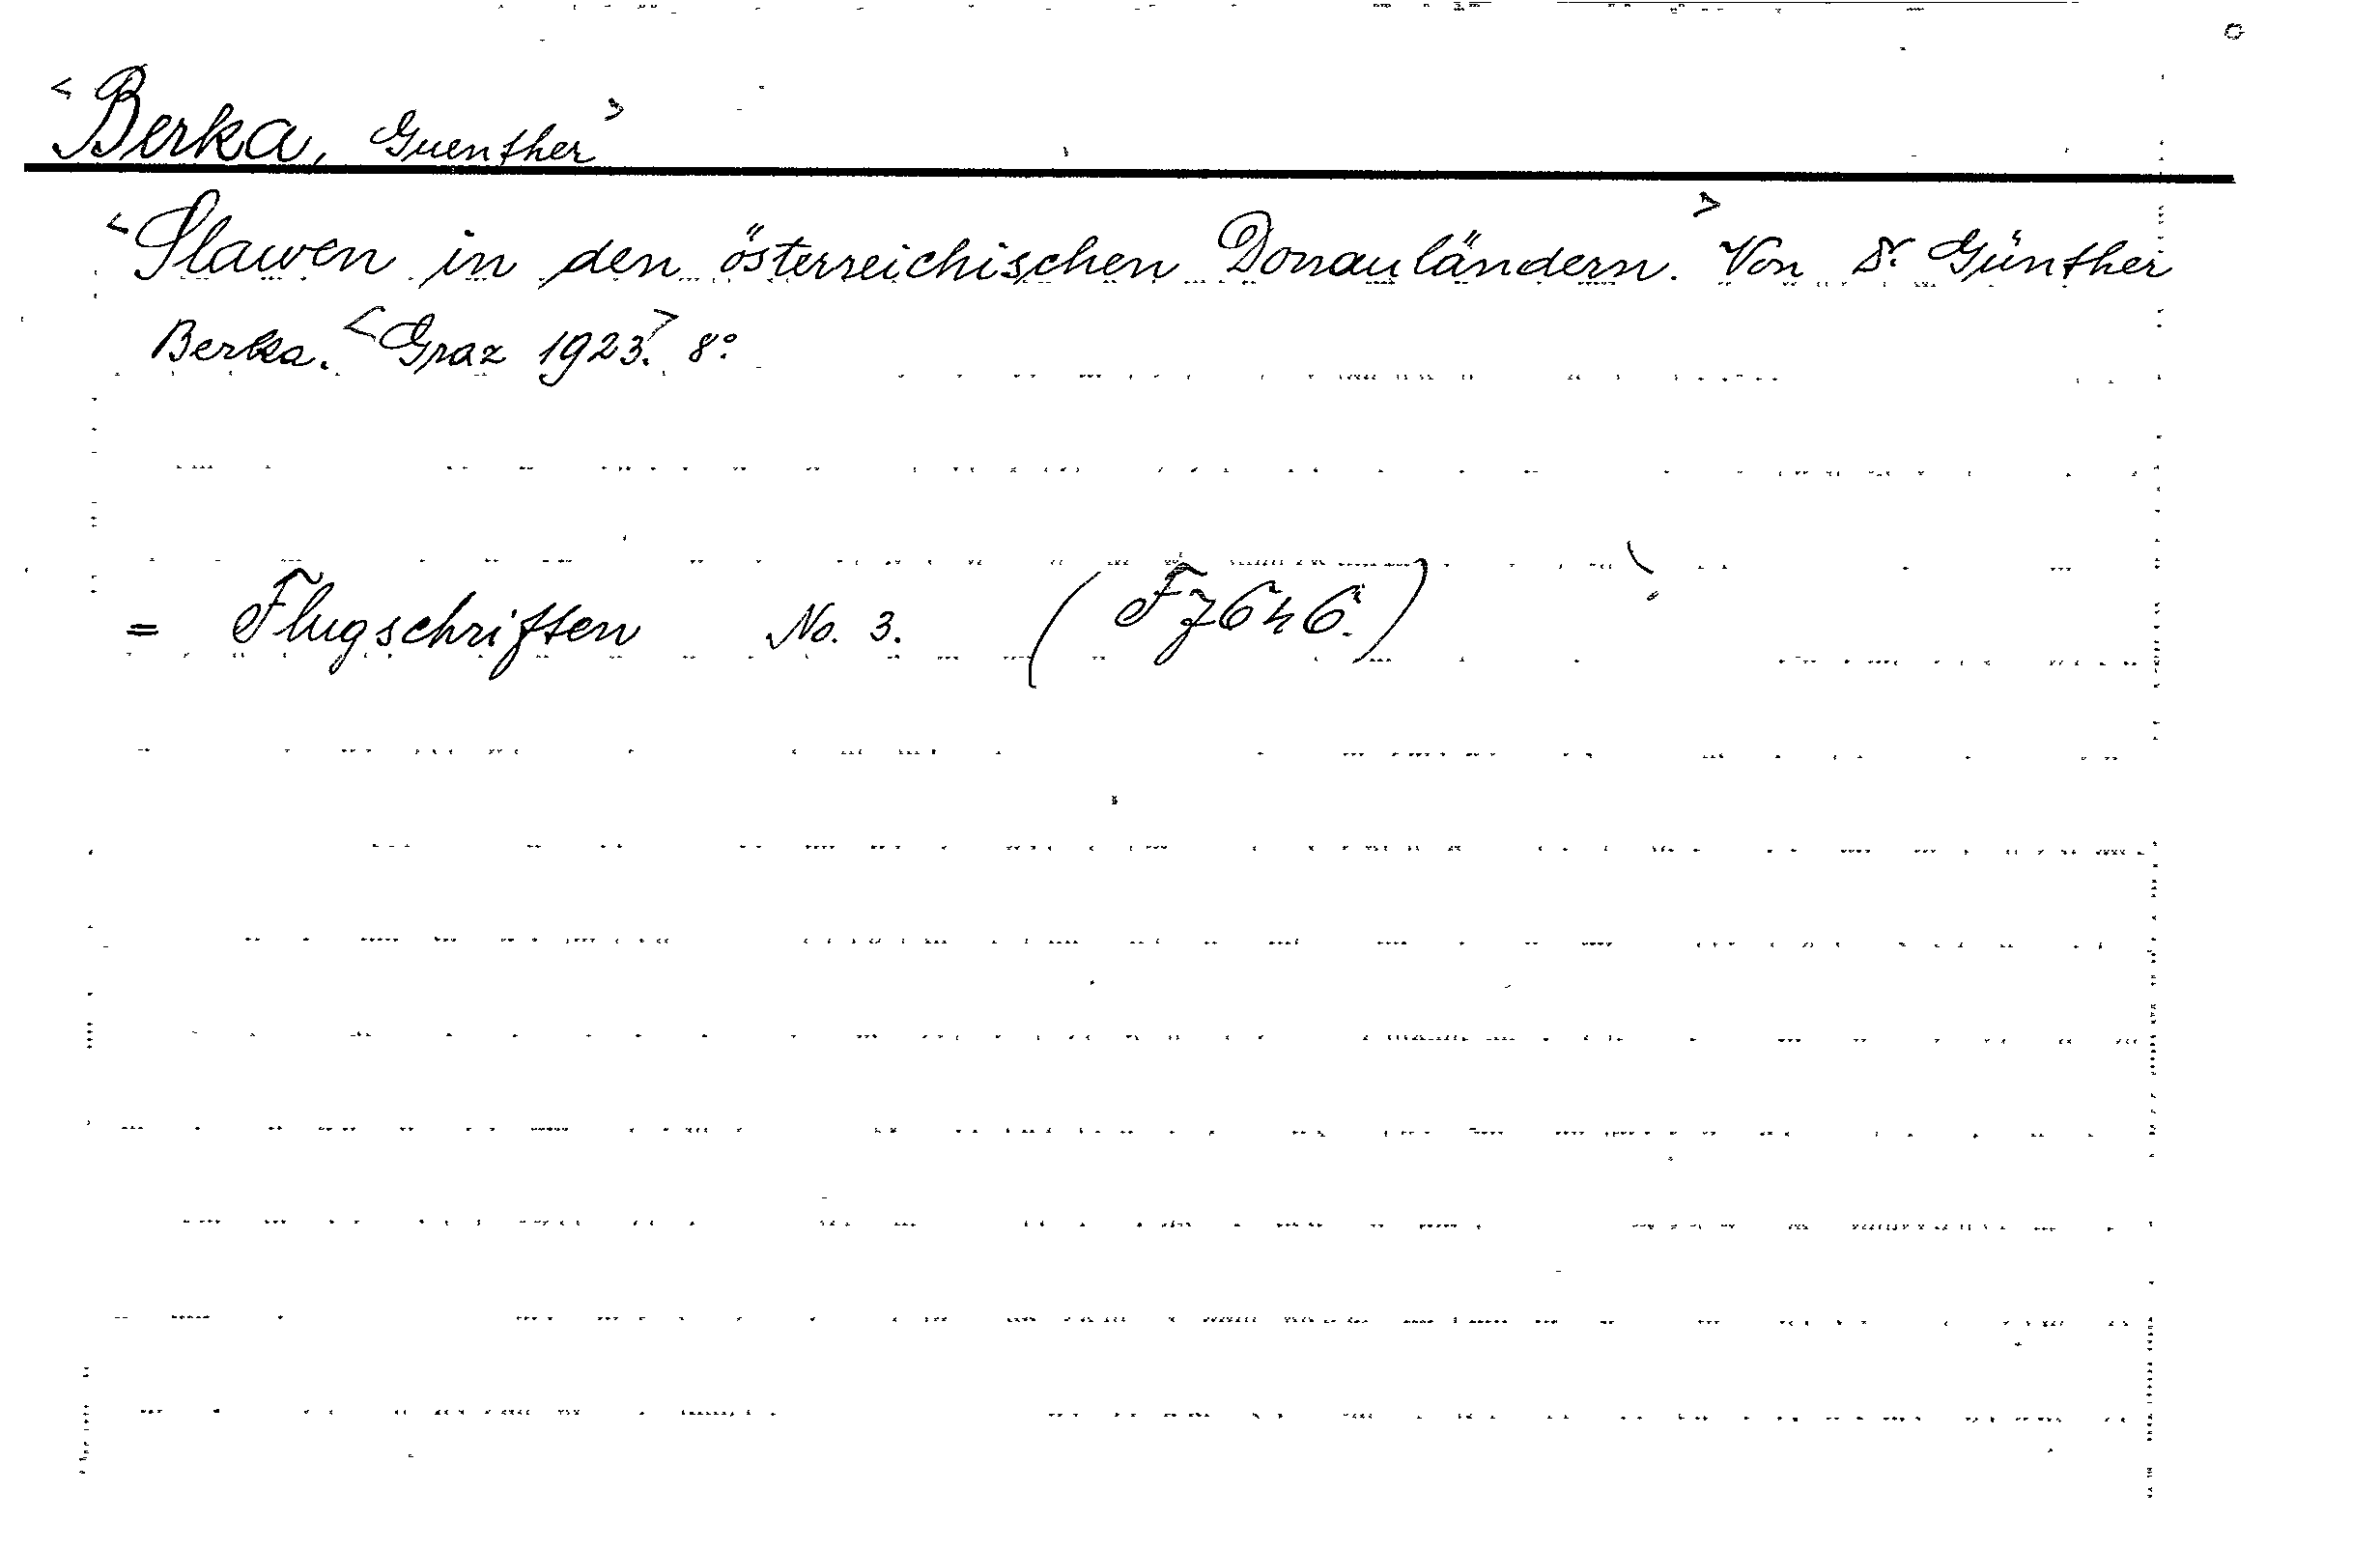 <Berka, Guenther>
<Slawen in den österreichischen Donauländern.> Von Dr. Günther
Berka. <Graz 1923.> 8°.
= Flugschriften No. 3. (F7646.)